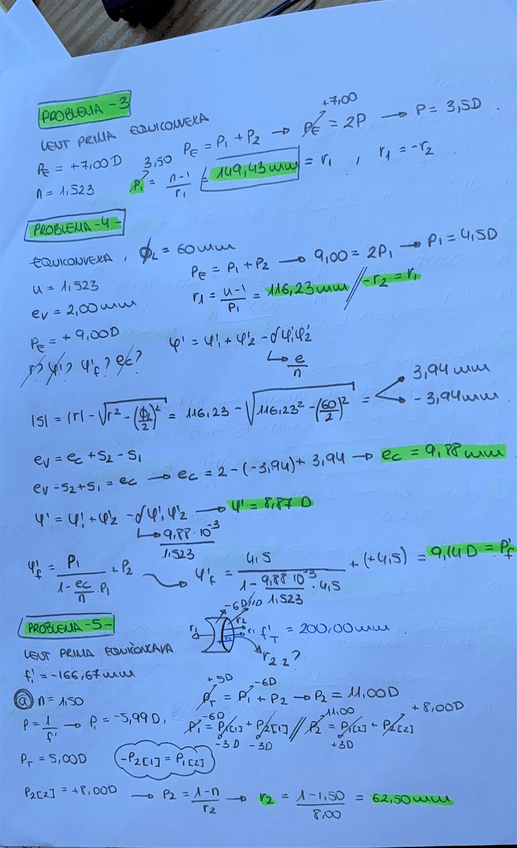 PROBLEMA-3
LENT PRIMA EQUICONVEXA
P_E = +7,00 D
n = 1,523
P_E = P₁ + P₂ → P_E = 2P → P = 3,5D
+7,00
3,50
P₁ = (n-1)/r₁ = 149,43 mm = r₁ , r₁ = -r₂
PROBLEMA-4-
EQUICONVEXA, ϕ_L = 60 mm
n = 1,523
e_v = 2,00 mm
P_E = +9,00 D
r? φ'? φ'_f? e_c?
P_E = P₁ + P₂ → 9,00 = 2P₁ → P₁ = 4,5D
r₁ = (n-1)/P₁ = 116,23 mm // -r₂ = r₁
φ' = φ'₁ + φ'₂ - δφ'₁φ'₂
↳ e/n
|S| = |r| - √(r² - (ϕ_L/2)²) = 116,23 - √(116,23² - (60/2)²) = 3,94 mm
-3,94 mm
e_v = e_c + S₂ - S₁
e_v - S₂ + S₁ = e_c → e_c = 2 - (-3,94) + 3,94 → e_c = 9,88 mm
φ' = φ'₁ + φ'₂ - δφ'₁φ'₂ → φ' = 8,87 D
↳ 9,88·10⁻³/1,523
φ'_f = P₁/(1 - e_c/n · P₁) + P₂ → φ'_f = 4,5/(1 - 9,88·10⁻³/1,523 · 4,5) + (+4,5) = 9,14 D = P'_f
PROBLEMA-5-
-6D 11D
r₁ r₂ r₁ f'_T = 200,00 mm
r₂ 2?
LENT PRIMA EQUICÒNCAVA
f'₁ = -166,67 mm
a n = 1,50
+5D -6D
P_T = P₁ + P₂ → P₂ = 11,00D
P = 1/f' → P₁ = -5,99 D,
-6D 11,00 +8,00D
P₁ = P₁[1] + P₂[1] // P₂ = P₁[2] + P₂[2]
-3D -3D +3D
P_T = 5,00D
-P₂[1] = P₁[2]
P₂[2] = +8,00D → P₂ = (1-n)/r₂ → r₂ = (1-1,50)/8,00 = 62,50 mm